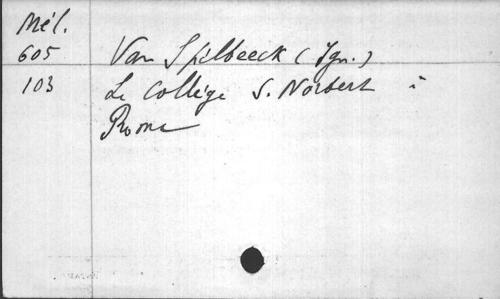 Mél.
605 Van Spilbeeck (Ign.)
103 Le Collège S. Norbert à
Rome